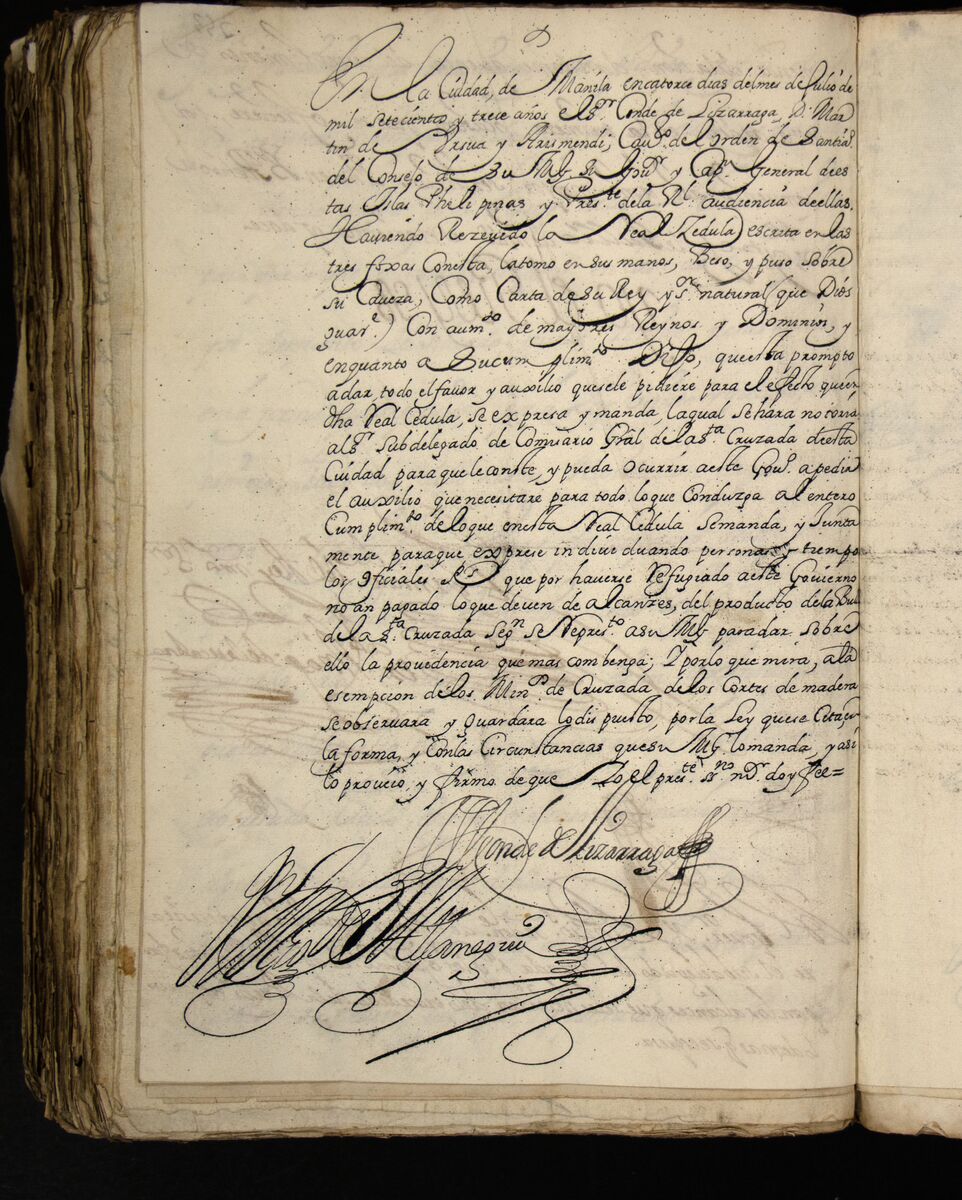 En la Ciudad, de Manila en catorce dias del mes de Julio de
mil setecientos y trece años el Sr. Conde de Lizarraga, D. Mar
tin de Vrsua y Arismendi, Cauo. del orden de Santiao.
del Consejo de Su Mg. Su Gour. y Capn. General de es
tas Islas Phelipinas y Preste. de la Rl. audiencia de ellas.
Hauiendo Rezeuido la Real Zedula escrita en las
tres foxas Con esta, la tomo en sus manos, Beso, y puso sobre
su Caueza, Como Carta de Su Rey y Sr. natural (que Dios
guare.) Con aumto. de mayores Reynos y Dominios, y
en quanto a Su Cumplimto. Dijo, que esta prompto
a dar, todo el fauor y auxilio que se le pidiere para el efecto que en
dha Real Cedula, se expresa y manda, la qual se hara notoria
al Sr. Subdelegado de Comisario Gral de la Sta. Cruzada de esta
Ciudad para que le conste, y pueda ocurrir a este Gouo. a pedir
el auxilio que necesitare para todo lo que Conduzga al entero
Cumplimto. de lo que en esta Real Cedula se manda, y Junta
mente para que exprese indiuiduando personas y tiempo
los oficiales Rs. que por hauerse Refugiado a este Gouierno
no an pagado lo que deuen de alcanzes, del producto de la Bul
de la Sta. Cruzada Segn. se Represto. a su Mg. para dar sobre
ello la prouidencia que mas combenga; Y por lo que mira, a la
esempcion de los Minos. de Cruzada, de los Cortes de madera
se obseruara y guardara lo dispuesto, por la Ley que se Cita, en
la forma, y con las Circunstancias que su Mg. lo manda, y asi
lo proueio, y firmo de que Yo el preste. Ssno. ndr. doy fee=
El Conde de Lizarraga